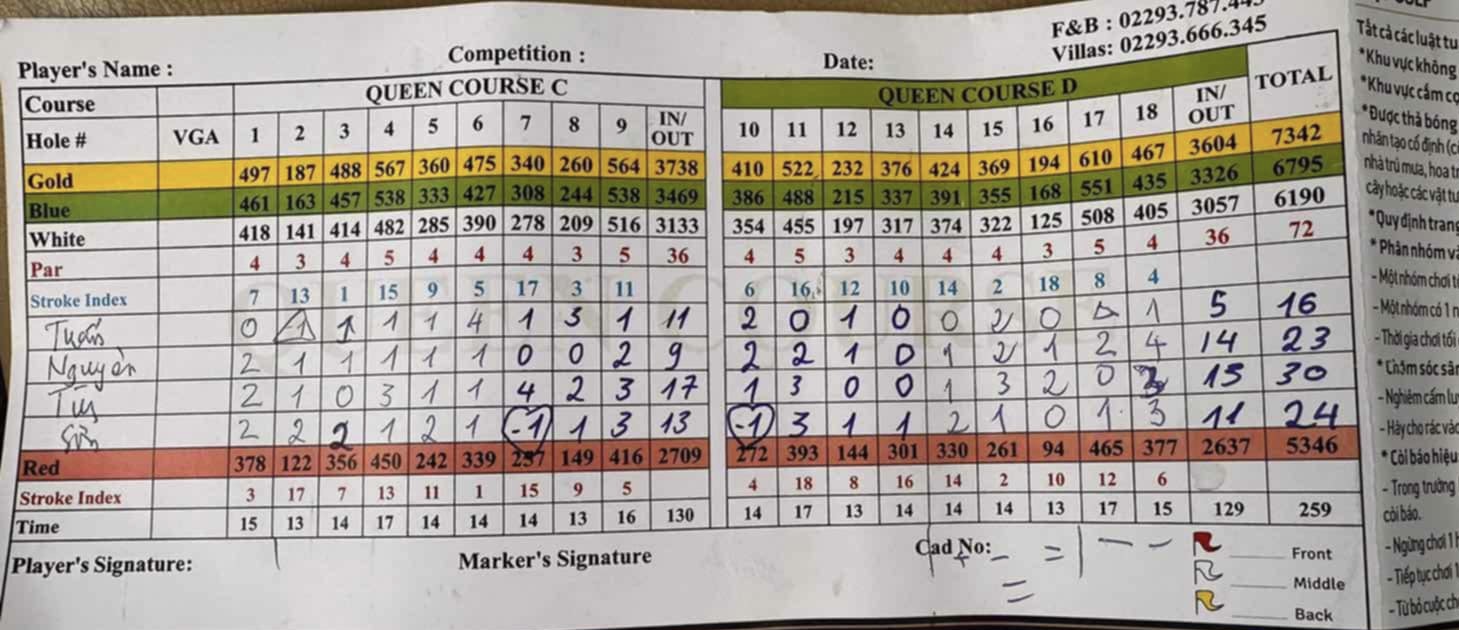 F&B : 02293.787.445
Villas: 02293.666.345
Player's Name : Competition : Date:
Course QUEEN COURSE C QUEEN COURSE D IN/OUT TOTAL
Hole # VGA 1 2 3 4 5 6 7 8 9 IN/OUT 10 11 12 13 14 15 16 17 18
Gold 497 187 488 567 360 475 340 260 564 3738 410 522 232 376 424 369 194 610 467 3604 7342
Blue 461 163 457 538 333 427 308 244 538 3469 386 488 215 337 391 355 168 551 435 3326 6795
White 418 141 414 482 285 390 278 209 516 3133 354 455 197 317 374 322 125 508 405 3057 6190
Par 4 3 4 5 4 4 4 3 5 36 4 5 3 4 4 4 3 5 4 36 72
Stroke Index 7 13 1 15 9 5 17 3 11 6 16 12 10 14 2 18 8 4
Tuấn 0 -1 1 1 1 4 1 3 1 11 2 0 1 0 0 2 0 1 5 16
Nguyên 2 1 1 1 1 1 0 0 2 9 2 2 1 0 1 2 1 2 4 14 23
2 1 0 3 1 1 4 2 3 17 1 3 0 0 1 3 2 0 3 13 30
Sơn 2 2 2 1 2 1 -1 1 3 13 -1 3 1 1 2 1 0 1 3 11 24
Red 378 122 356 450 242 339 257 149 416 2709 272 393 144 301 330 261 94 465 377 2637 5346
Stroke Index 3 17 7 13 11 1 15 9 5 4 18 8 16 14 2 10 12 6
Time 15 13 14 17 14 14 14 13 16 130 14 17 13 14 14 14 13 17 15 129 259
Player's Signature: Marker's Signature Cad No:
Front
Middle
Back
QUEEN COURSE
Tất cả các luật
*Khu vực không
*Khu vực cắm
*Được thả bóng
nhân tạo cố định
nhà trú mưa, hoa
cây hoặc các vật
*Quy định trang
* Phân nhóm
- Một nhóm chơi
- Một nhóm có 1
- Thời gia chơi tối
* Chăm sóc sân
- Nghiêm cấm
- Hãy cho rác vào
* Còi báo hiệu
- Trong trường
còi báo.
- Ngừng chơi 1
- Tiếp tục chơi 1
- Từ bỏ cuộc